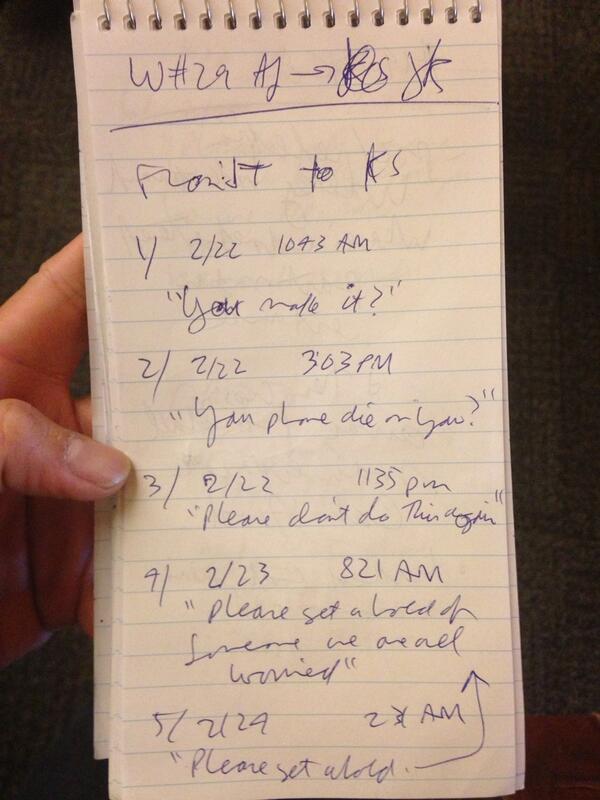 W#29 AJ → JK
to KS
1/ 2/22 1043 AM
"You make it?"
2/ 2/22 303 PM
"Your phone die on you?"
3/ 2/22 1135 pm
"Please don't do this again"
4/ 2/23 821 AM
"Please get ahold of
someone we are all
worried"
5/ 2/24 AM
"Please get ahold.